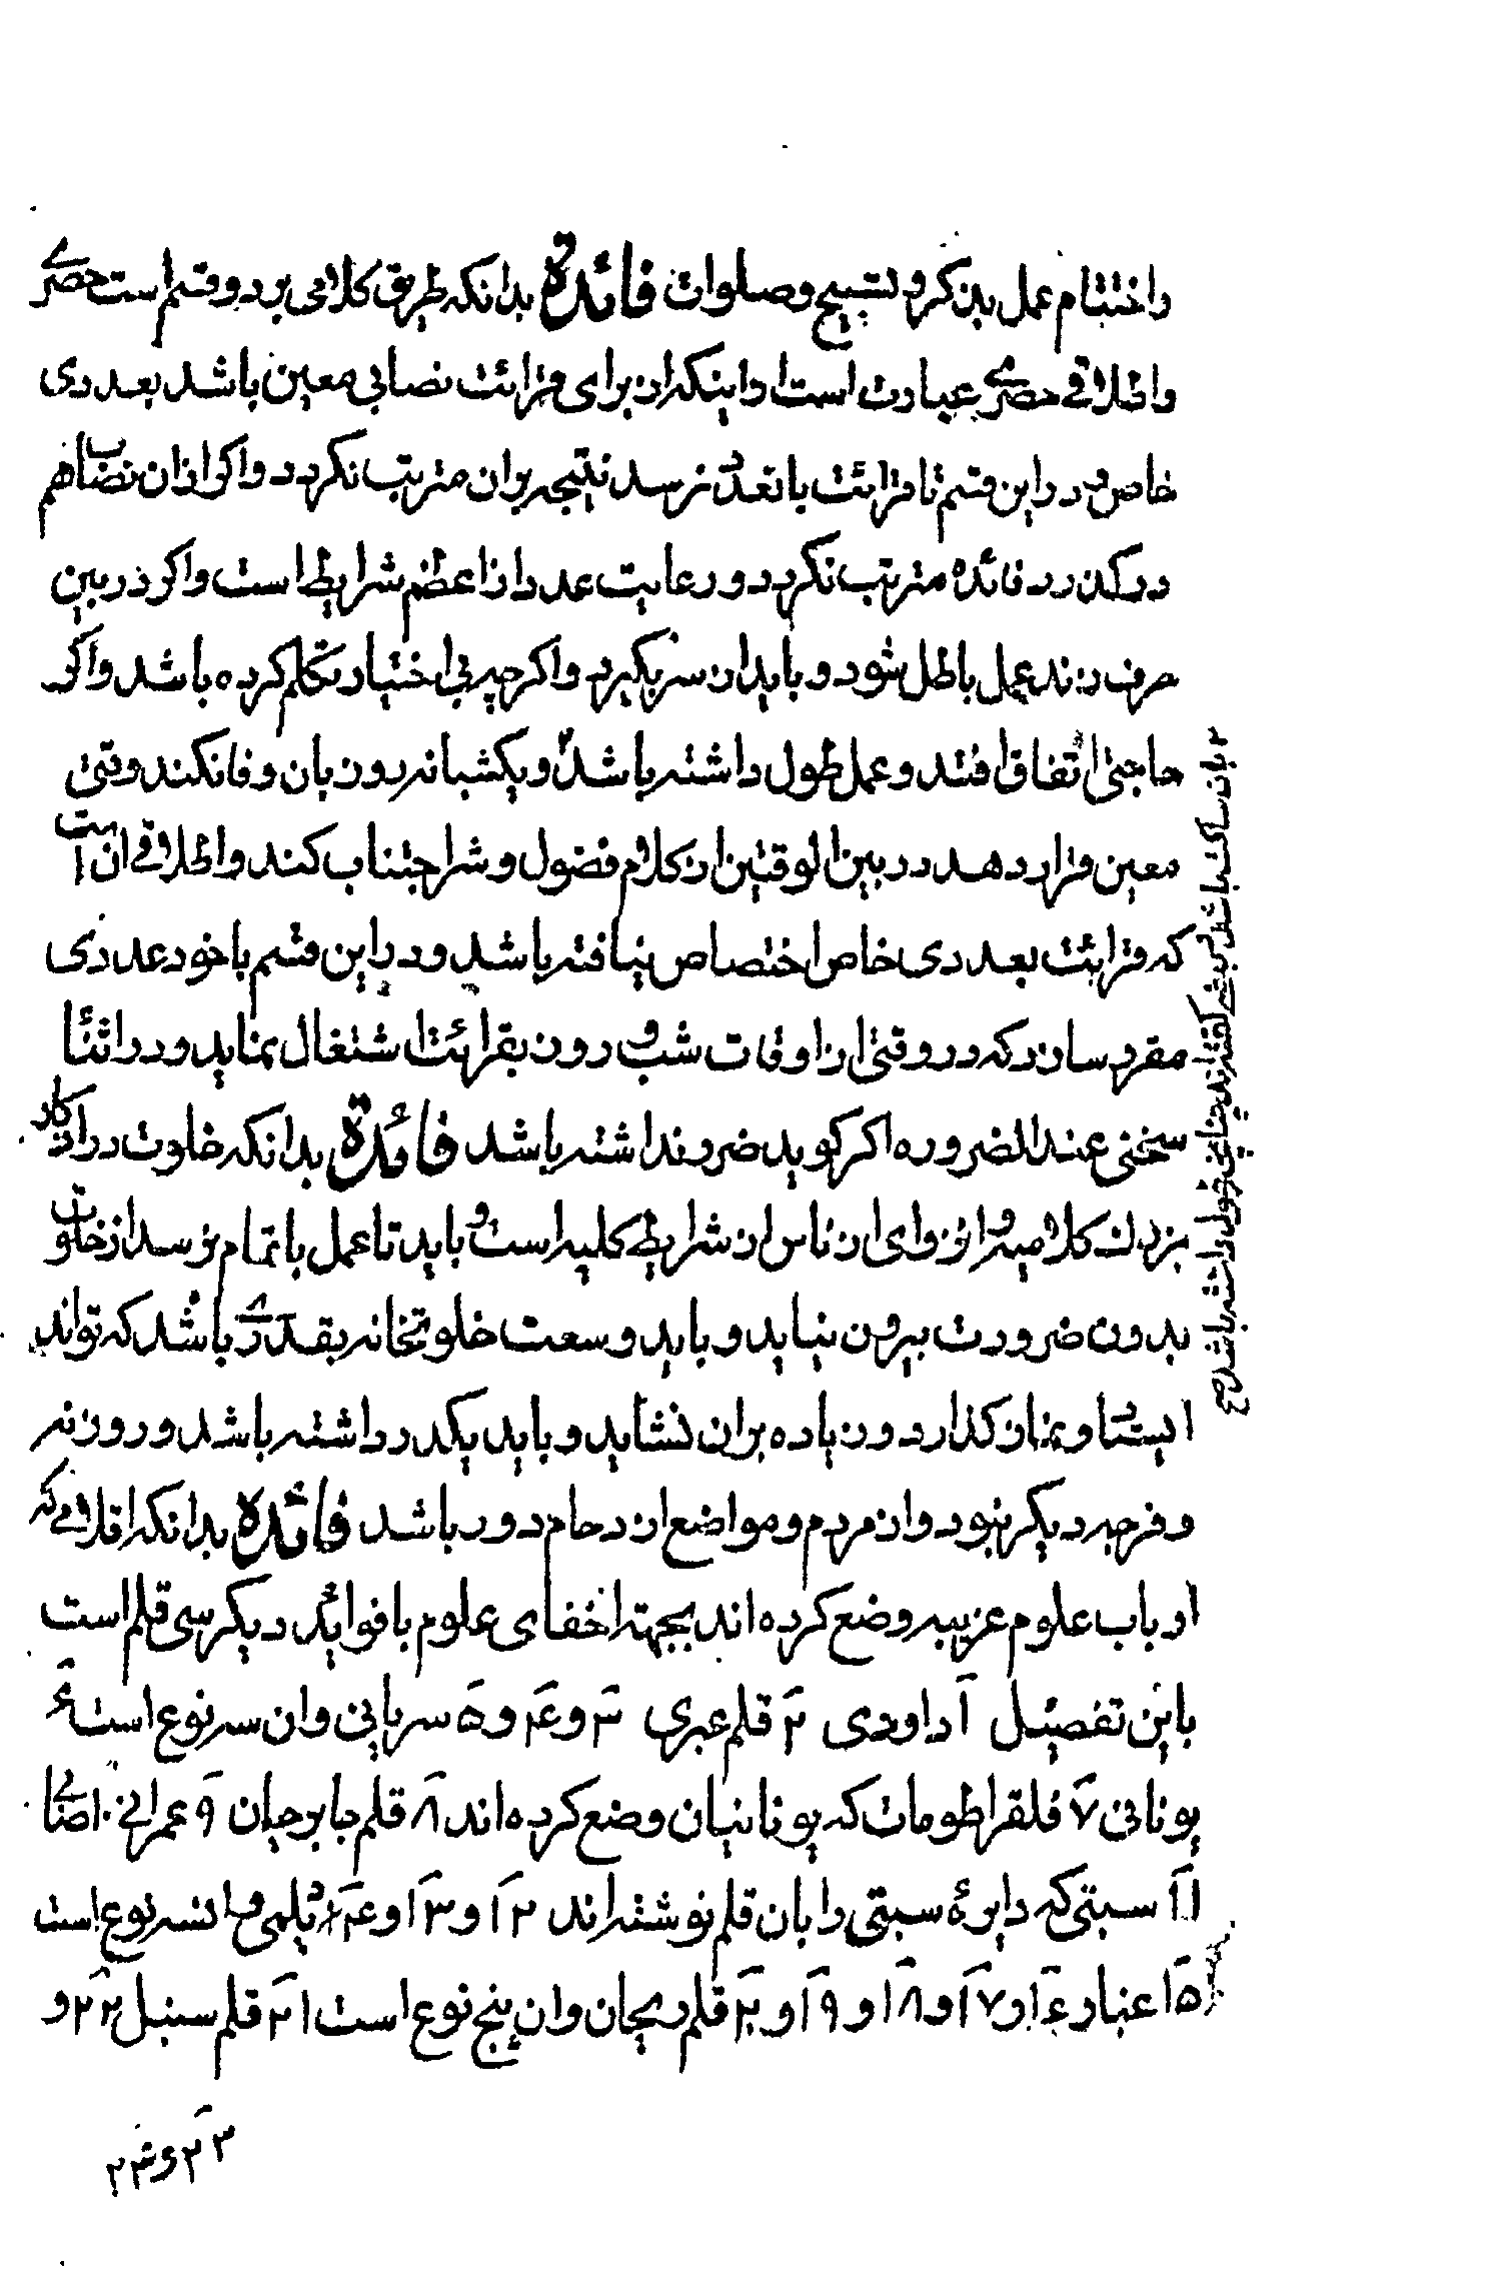 واختتام عمل بذکر و تسبیح و صلوات فائدة بدانکه طریق کلامی بر دو قسم است حصری
و اطلاقی حصری عبارت است از اینکه از برای قرائت نصابی معین باشد بعددی
خاص و در این قسم تا قرائت بانعدد نرسد نتیجه بر ان مترتب نکردد و اکر از ان نصاب هم
درکذرد فائده مترتب نکردد و رعایت عدد از اعظم شرایط است و اکر در بین
حرف زند عمل باطل شود و باید از سر بکیرد و اکرچه بی اختیار تکلم کرده باشد و اکر
حاجتی اتفاق افتد و عمل طول داشته باشد و یکشبانه روز بان وفا نکند وقتی
معین قرار دهد در بین الوقتین از کلام فضول و شر اجتناب کند و اطلاقی ان است
که قرائت بعددی خاص اختصاص نیافته باشد و در این قسم با خود عددی
مقرر سازد که در وقتی از اوقات شب و روز بقرائت اشتغال نماید و در اثنا
سخنی عند الضروره اکر کوید ضرر نداشته باشد فائدة بدانکه خلوت در اذکار
بزرك کلامیه و انزوای از ناس از شرایط کلیه است و باید تا عمل باتمام نرسد از خلوت
بدون ضرورت بیرون نیاید و باید وسعت خلوتخانه بقدری باشد که تواند
ایستاد و نماز کذارد و زیاده بر ان نشاید و باید یکدر داشته باشد و روزنه
و فرجه دیکر نبود و از مردم و مواضع ازدحام دور باشد فائدة بدانکه اقلامی که
ارباب علوم غریبه وضع کرده اند بجهة اخفای علوم با فوائد دیکر سی قلم است
باین تفصیل ۱ داودی ۲ قلم عبری ۳ و ۴ و ۵ سریانی و ان سه نوع است ۶
یونانی ۷ فلقراطومات که یونانیان وضع کرده اند ۸ قلم جابر حیان ۹ عمرانی ۱۰
۱۱ سبتی که دایرهٔ سبتی را بان قلم نوشته اند ۱۲ و ۱۳ و ۱۴ و ان سه نوع است
۱۵ غبار ۱۶ و ۱۷ و ۱۸ و ۱۹ و ۲۰ قلم ریحان و ان پنج نوع است ۲۱ قلم سنبل ۲۲ و